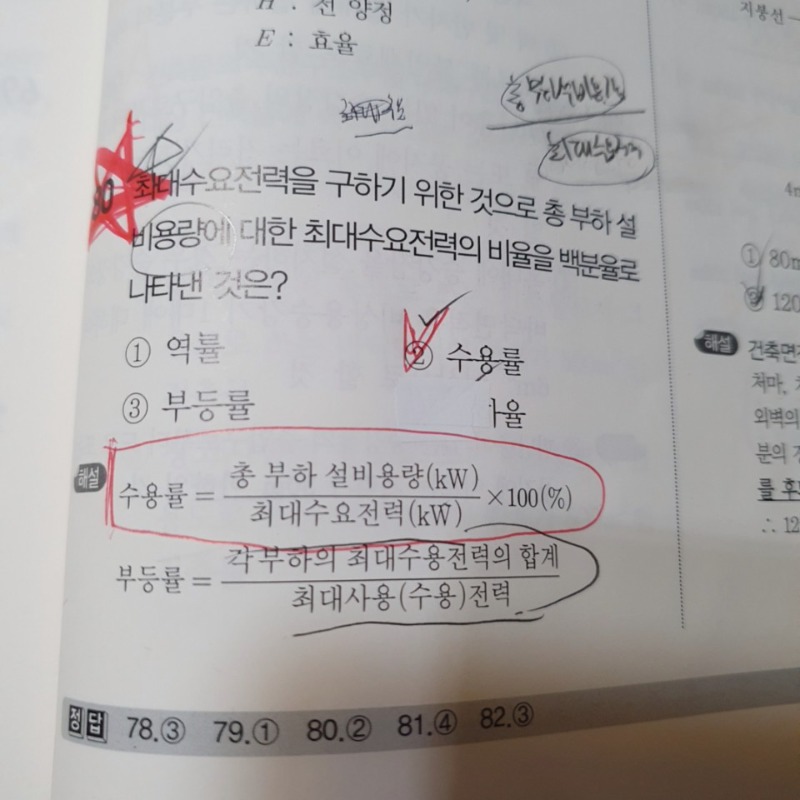 H : 전 양정
E : 효율
총 부하설비용량
최대수요전력
지붕선
80 최대수요전력을 구하기 위한 것으로 총 부하 설
비용량에 대한 최대수요전력의 비율을 백분율로
나타낸 것은?
① 역률
② 수용률
③ 부등률
율
해설 수용률 = 총 부하 설비용량(kW) / 최대수요전력(kW) ×100(%)
부등률 = 각 부하의 최대수용전력의 합계 / 최대사용(수용)전력
4m
① 80m
② 120
해설 건축면
처마,
외벽의
분의
를 후
∴ 12
정답 78.③ 79.① 80.② 81.④ 82.③